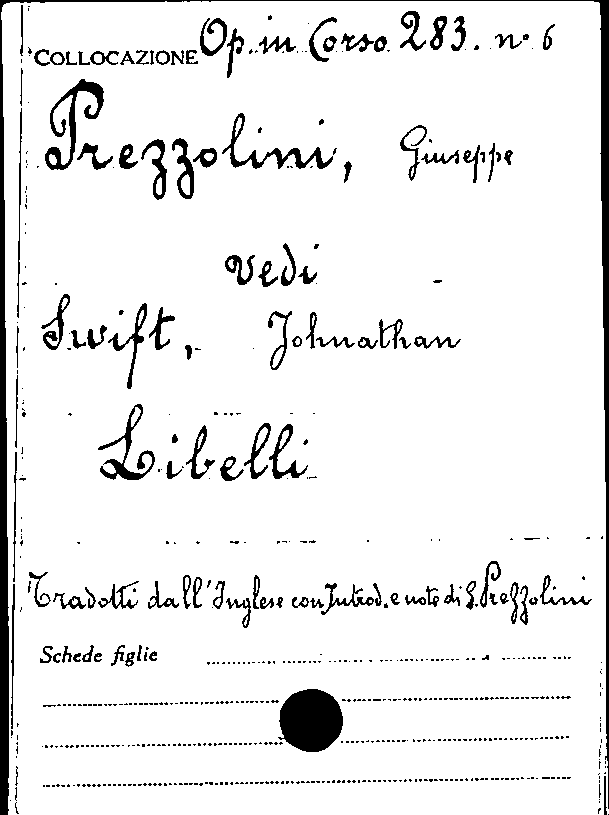 COLLOCAZIONE Op. in Corso 283. n. 6
Prezzolini, Giuseppe
vedi
Swift, Johnathan
Libelli
Tradotti dall'Inglese con Introd. e note di G. Prezzolini
Schede figlie